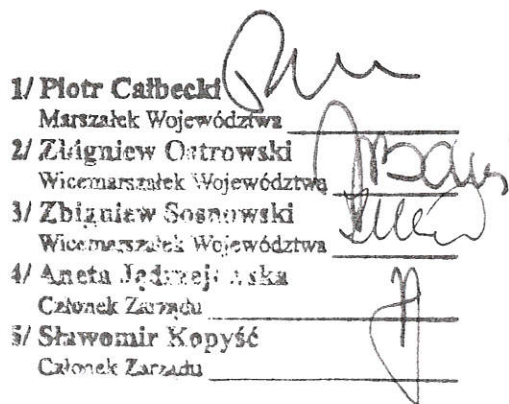 1/ Piotr Całbecki
Marszałek Województwa
2/ Zbigniew Ostrowski
Wicemarszałek Województwa
3/ Zbigniew Sosnowski
Wicemarszałek Województwa
4/ Aneta Jędrzejewska
Członek Zarządu
5/ Sławomir Kopyść
Członek Zarządu